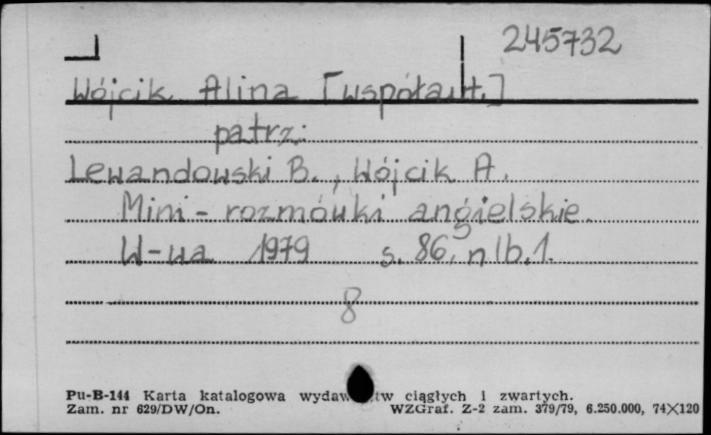 245732
Wójcik Alina [współaut.]
patrz:
Lewandowski B., Wójcik A.
Mini-rozmówki angielskie.
W-wa 1979 s. 86, nlb. 1.
8
Pu-B-144 Karta katalogowa ciągłych i zwartych.
Zam. nr 629/DW/On. WZGraf. Z-2 zam. 379/79, 6.250.000, 74×120